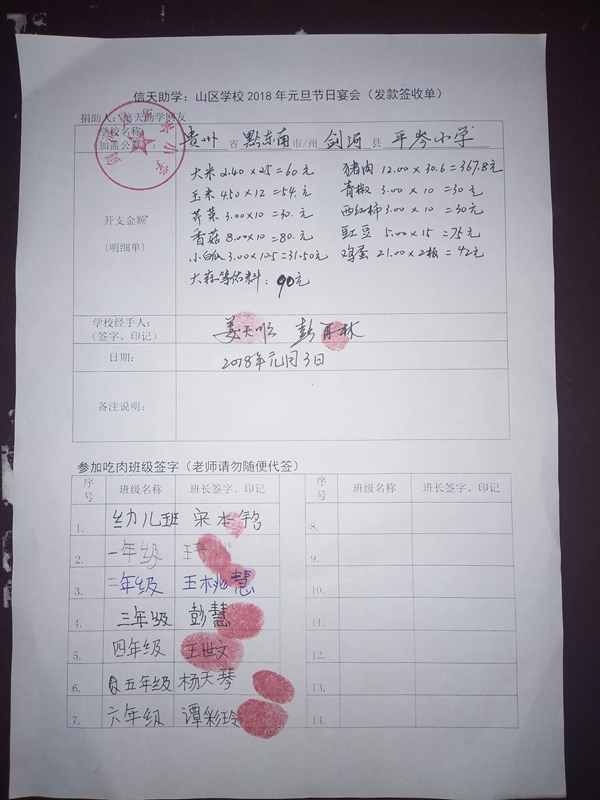 信天助学：山区学校 2018 年元旦节日宴会（发款签收单）
捐助人：信天助学网友
学校名称 贵州 省 黔东南 市/州 剑河 县 平岑小学
加盖公章：
大米 2.40×25=60元 猪肉 12.00×30.6=367.8元
玉米 4.50×12=54.元 青椒 3.00×10=30元
芹菜 3.00×10=30.元 西红柿 3.00×10=30元
开支金额
香菇 8.00×10=80.元 豇豆 5.00×15=75元
(明细单)
小白瓜 3.00×10.5=31.50元 鸡蛋 21.00×2板=42元
大蒜等佐料：90元
学校经手人： 姜天顺 彭再林
(签字、印记)
日期： 2018年元月3日
备注说明：
参加吃肉班级签字（老师请勿随便代签）
序号 班级名称 班长签字、印记 序号 班级名称 班长签字、印记
1. 幼儿班 宋本铭 8.
2. 一年级 王 9.
3. 二年级 王桃慧 10.
4. 三年级 彭慧 11.
5. 四年级 王世文 12.
6. 五年级 杨天琴 13.
7. 六年级 谭彩玲 14.